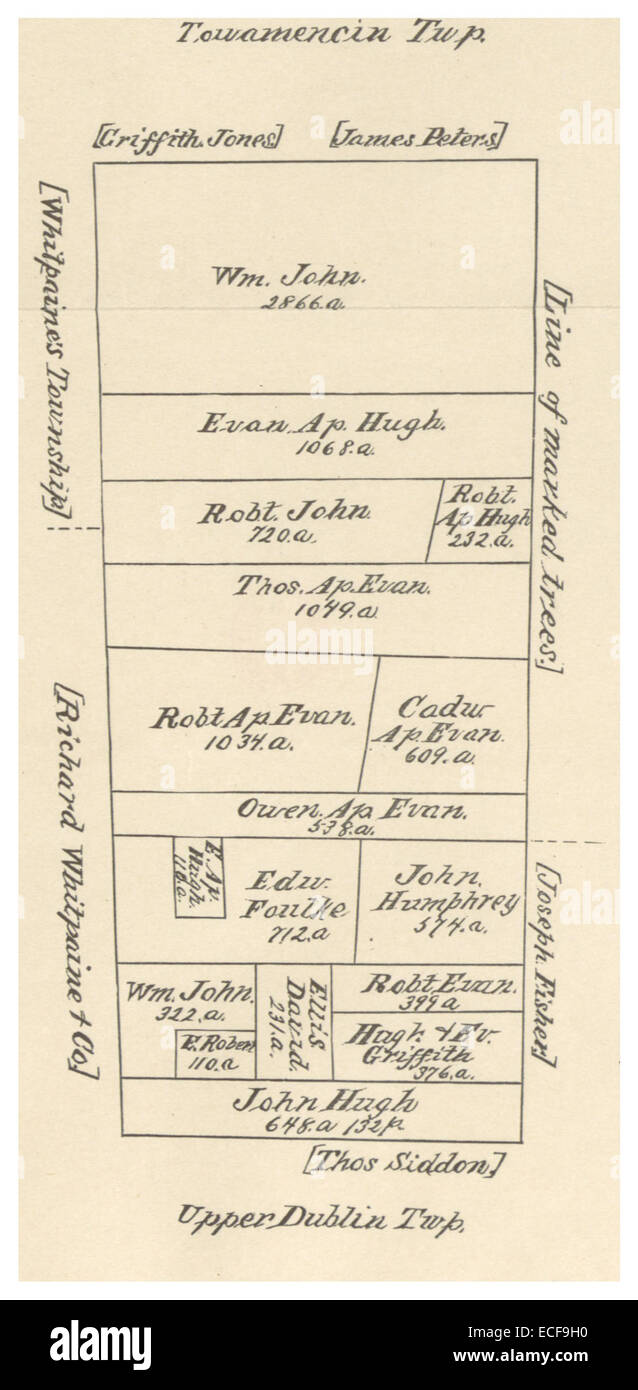 Towamencin Twp.
[Griffith Jones] [James Peters]
[Whitpaine's Township]
Wm. John.
2866.a.
[Line of marked trees.]
Evan Ap Hugh.
1068.a.
Robt. John.
720.a.
Robt.
Ap Hugh
232.a.
Thos. Ap. Evan.
1049.a.
[Richard Whitpaine & Co.]
Robt Ap Evan.
1034.a.
Cadw.
Ap Evan.
609.a.
Owen Ap Evan.
538.a.
E. Ap.
Hugh.
110.a.
Edw.
Foulke
712.a
John.
Humphrey
574.a.
[Joseph Fisher]
Wm. John.
322.a.
E. Robert
110.a
Ellis
David.
231.a.
Robt. Evan.
399a
Hugh & Ev.
Griffith
376.a.
John Hugh
648.a 132p.
[Thos Siddon]
Upper Dublin Twp.
alamy
alamy
a
a
a
a
a
a
alamy
Image ID: ECF9H0
www.alamy.com